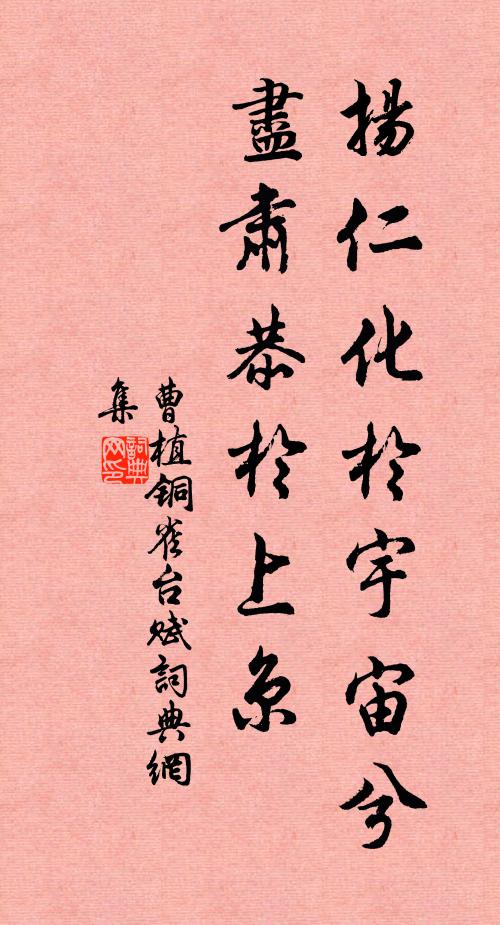 揚仁化於宇宙兮
盡肅恭於上京
曹植銅雀台賦詞典網
集
詞典網印